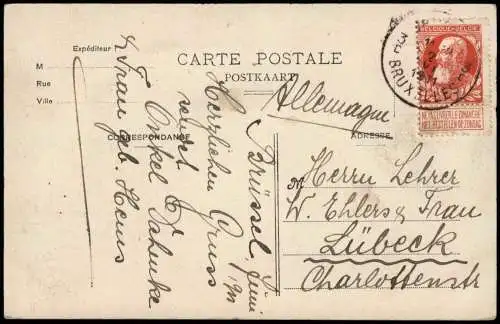 Expéditeur :
M
Rue
Ville
CARTE POSTALE
POSTKAART
CORRESPONDANCE
ADRESSE
BELGIQUE-BELGIË
NE PAS LIVRER LE DIMANCHE
NIET BESTELLEN OP ZONDAG
BRUX
Allemagne
Herrn Lehrer
W. Ehlers & Frau
Lübeck
Charlottenstr
Brüssel, Juni
Herzlichen Gruss
Onkel
& Frau geb.